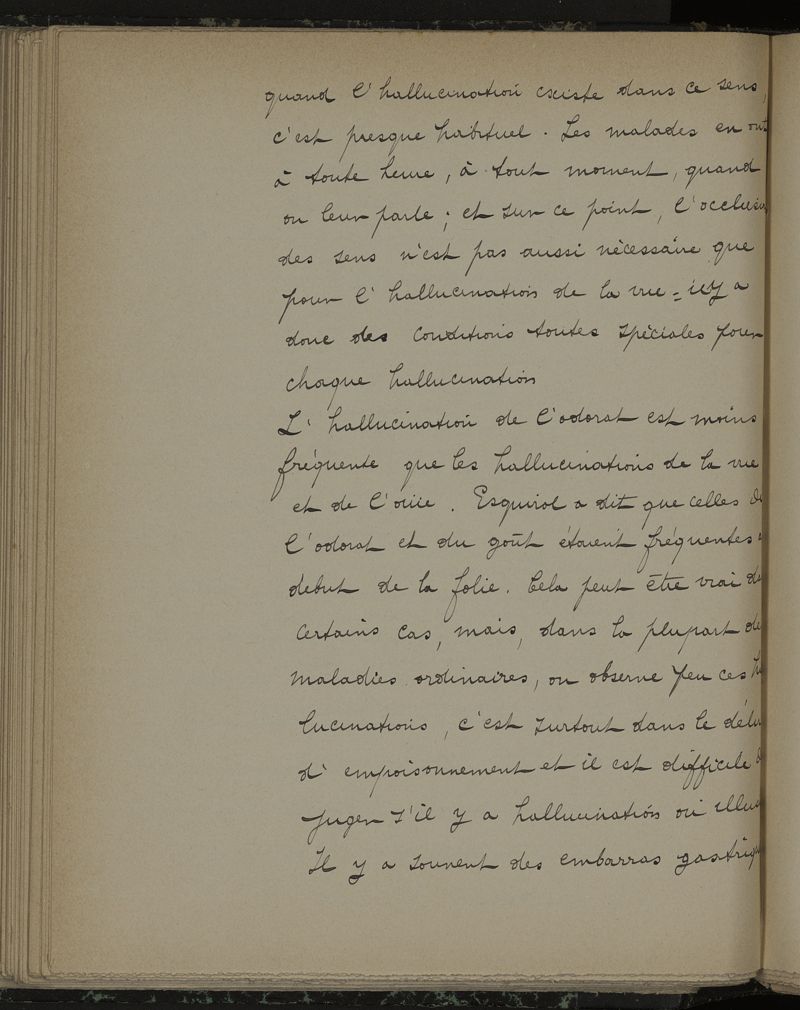 quand l'hallucination existe dans ce sens,
c'est presque habituel. Les malades en ont
à toute heure, à tout moment, quand
on leur parle; et sur ce point, l'occlusion
des sens n'est pas aussi nécessaire que
pour l'hallucination de la vue = il y a
donc des conditions toutes spéciales pour
chaque hallucination
L'hallucination de l'odorat est moins
fréquente que les hallucinations de la vue
et de l'ouïe. Esquirol a dit que celles de
l'odorat et du goût étaient fréquentes
debut de la folie. Cela peut être vrai da
certains cas, mais, dans la plupart de
maladies ordinaires, on observe peu ces h
lucinations, c'est surtout dans le déli
d'empoisonnement et il est difficile d
juger s'il y a hallucination ou illu
Il y a souvent des embarras gastriq